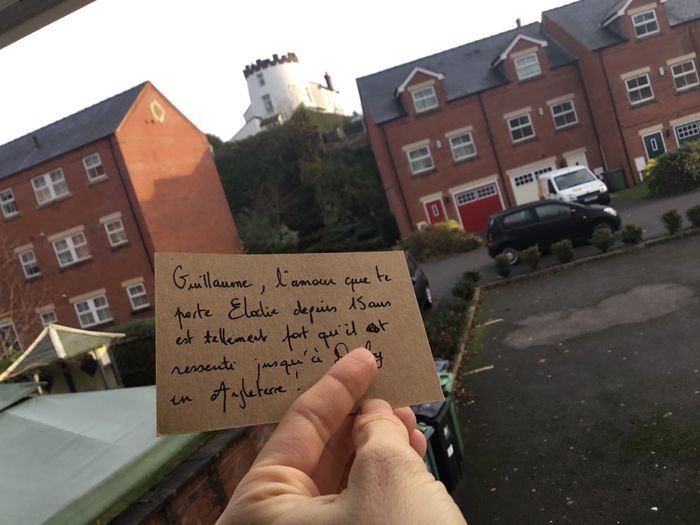 Guillaume, l'amour que te
porte Elodie depuis 15 ans
est tellement fort qu'il est
ressenti jusqu'à
en Angleterre !